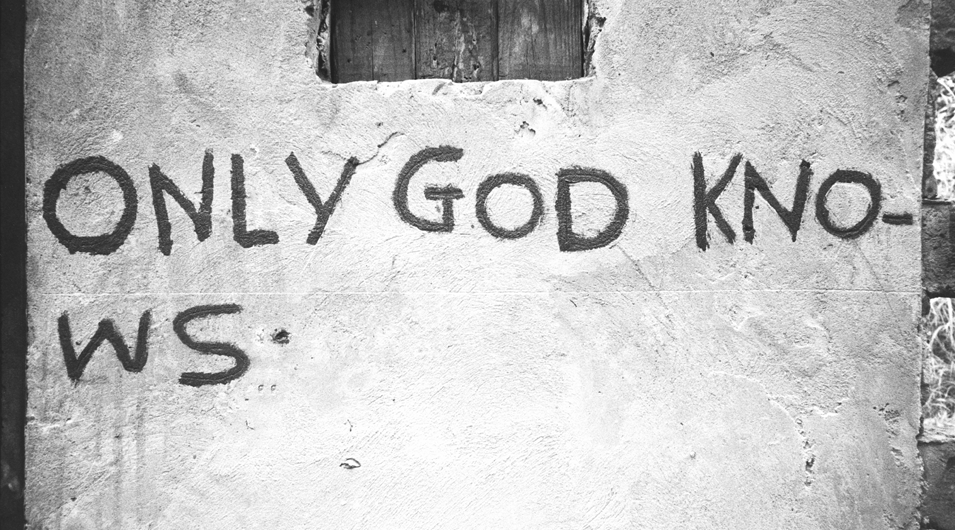 ONLY GOD KNO-
WS